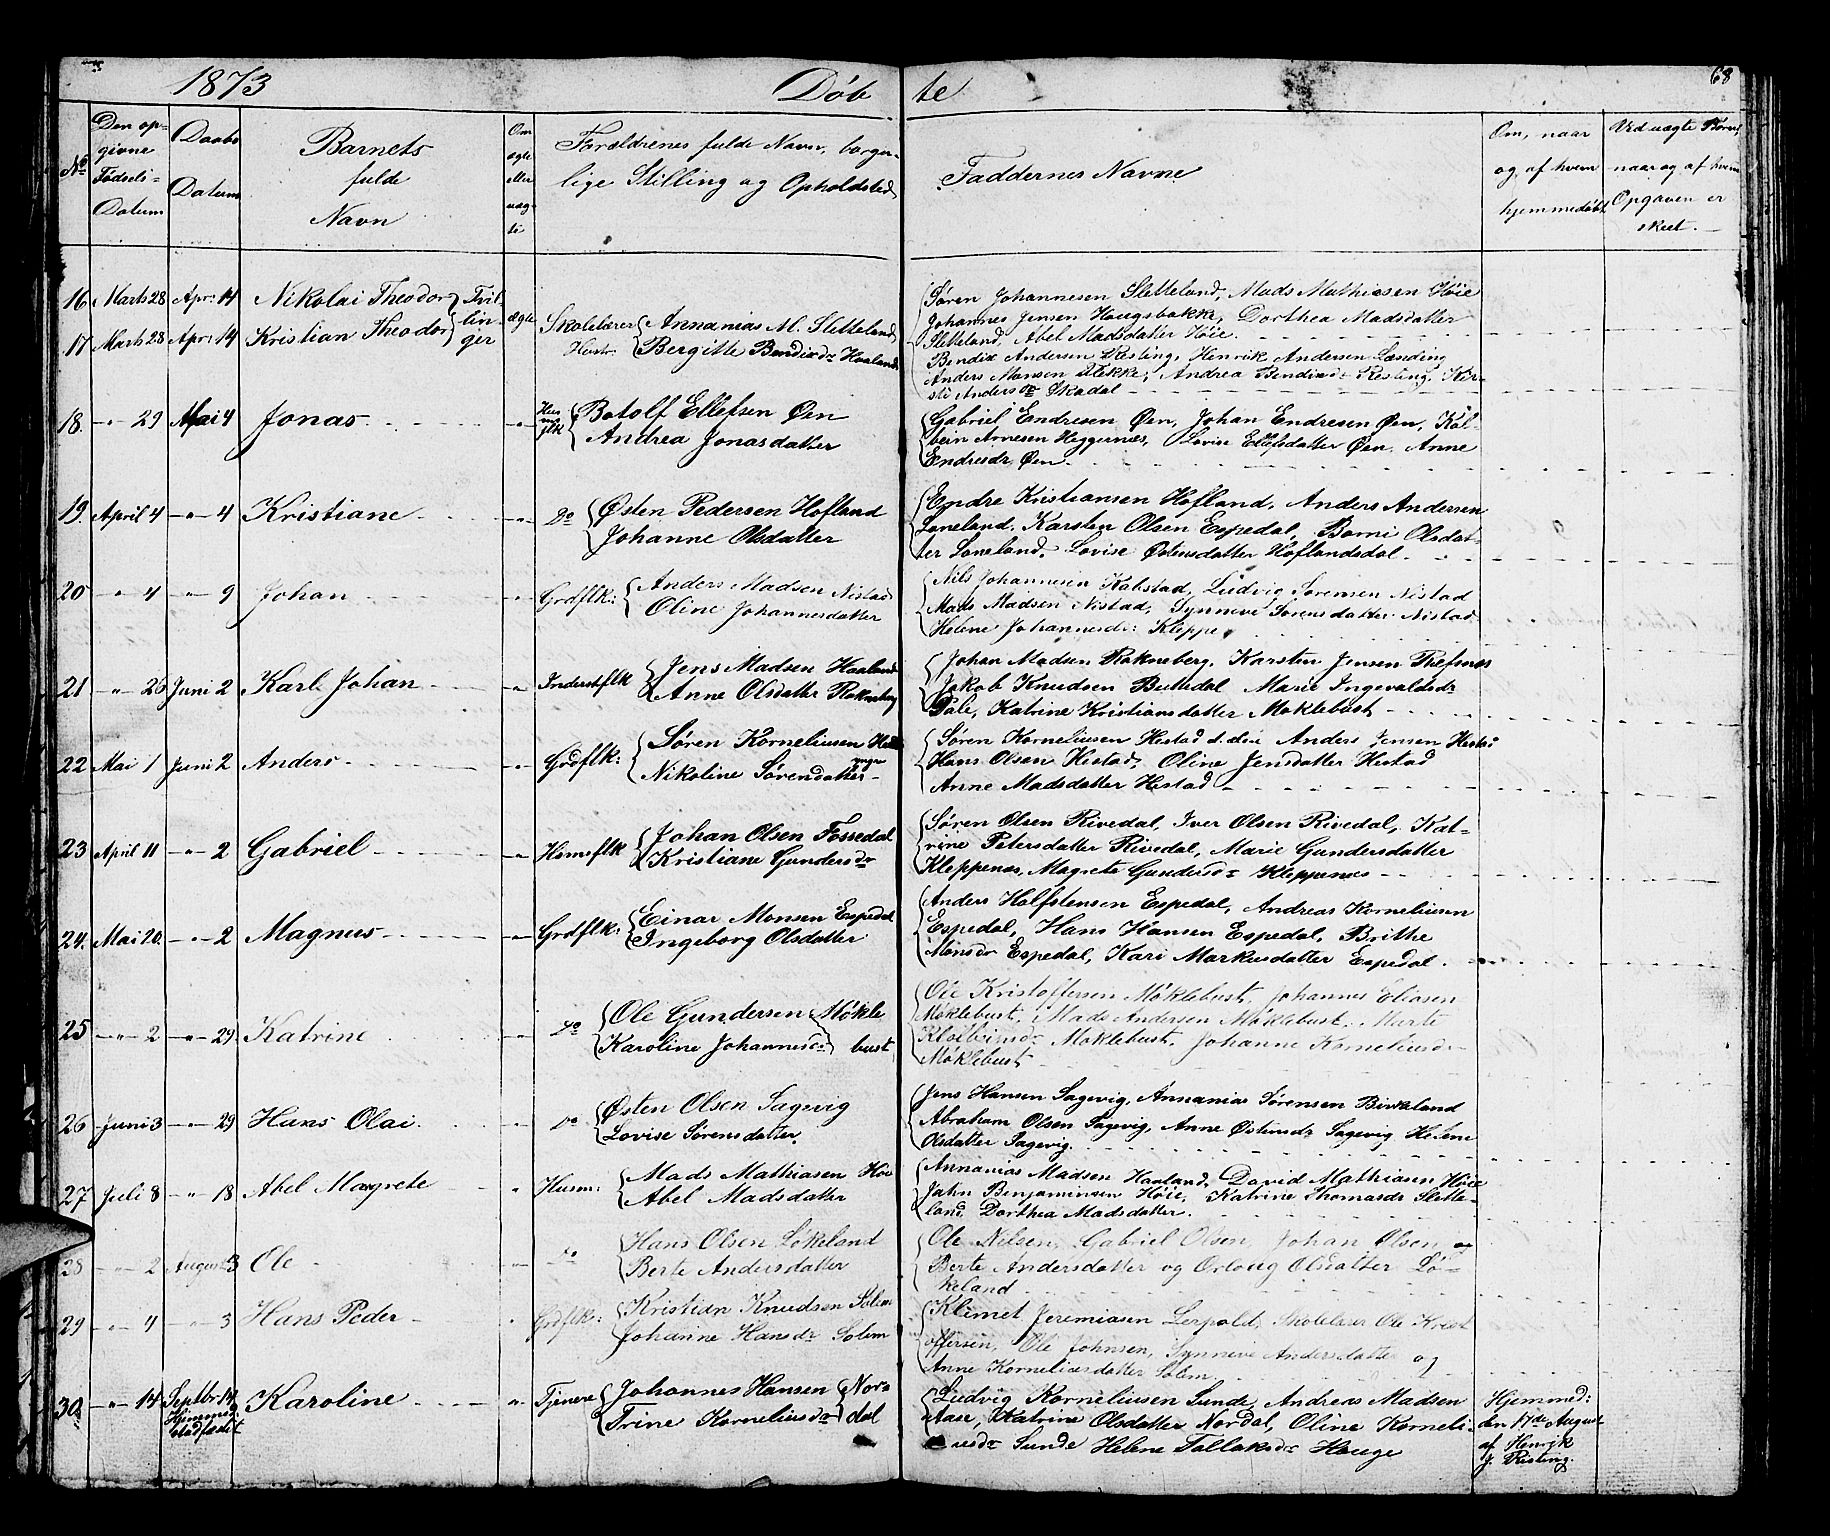 1873 Döbte 68
No
Den opgivne Fødsels-Datum
Daabs Datum
Barnets fulde Navn
Om ægte eller uægte
Forældrenes fulde Navn, borgerlige Stilling og Opholdsted
Faddernes Navne
Om, naar og af hvem hjemmedöbt
Ved uægte Börn, naar og af hvem Opgaven er skeet.
16 Marts 28 Apr: 14 Nikolai Theodor
17 Marts 28 Apr: 14 Kristian Theodor
Tvillinger
ægte
Skolelærer Annanias M. Sletteland
Hustr: Bergitte Bendixdr Haaland
Søren Johannesen Sletteland, Mads Mathiesen Höie
Johannes Jensen Haugsbakke, Dorthea Madsdatter
Sletteland, Abel Madsdatter Höie.
Bendix Andersen Risting, Henrik Andersen
Anders Monsen, Andrea Bendixdr Risting, Kir-
sti Andersdr Skadal
18. -"- 29 Mai 4 Jonas
Botolf Ellefsen Øen
Andrea Jonasdatter
Gabriel Endresen Øen, Johan Endresen Øen, Kol-
bein Arnesen Heggernæs, Lovise Ellefsdatter Øen, Anne
Endresdr Øen
19. April 4 -"- 4 Kristiane -"- Do
Østen Pedersen Hofland
Johanne Olsdatter
Endre Kristiansen Hofland, Anders Andersen
Loneland, Karsten Olsen Espedal, Borni Olsdat-
ter Loneland, Lovise Østensdatter Hoflandsdal
20 -"- 4 -"- 9 Johan -"- Grdflk:
Anders Madsen Nistad
Oline Johannesdatter
Nils Johannesen Kalstad, Ludvig Sørensen Nistad
Mads Madsen Nistad, Synneve Sørensdatter Nistad
Helene Johannesdr: Kleppe
21 -"- 26 Juni 2 Karl Johan -"- Inderstflk
Jens Madsen Haaland
Anne Olsdatter Rokneberg
Johan Madsen Rokneberg, Karsten Jensen
Jakob Knudsen Marie Ingevaldsdr
Katrine Kristiansdatter Moklebust
22 Mai 1 Juni 2 Anders -"- Grdflk:
Søren Korneliusen
yngre
Nikoline Sørensdatter
Søren Korneliusen Hestad d. ældre Anders Jensen Hestad
Hans Olsen Hestad, Oline Jensdatter Hestad
Anne Madsdatter Hestad
23 April 11 -"- 2 Gabriel -"- Husmflk
Johan Olsen Fossedal
Kristiane Gundersdr
Søren Olsen Rivedal, Iver Olsen Rivedal, Kat-
rine Petersdatter Rivedal, Marie Gundersdatter
Kleppenes, Magrete Gundersdr Kleppenes
24. Mai 20. -"- 2 Magnus -"- Grdflk:
Einar Monsen Espedal
Ingeborg Olsdatter
Anders Halfstensen Espedal, Andreas Korneliusen
Espedal, Hans Hansen Espedal, Brithe
Monsdr Espedal, Kari Markusdatter Espedal.
25 -"- 2 -"- 29 Katrine -"- Do
Ole Gundersen Mökle
Karoline Johannesdr bust
Ole Kristoffersen Möklebust, Johannes Eliasen
Möklebust, Mads Andersen Möklebust, Marte
Kolbeinsdr Möklebust, Johanne Korneliusdr
Möklebust
26 Juni 3 -"- 29 Hans Olai. -"- Do
Østen Olsen Sagevig
Lovise Sørensdatter
Jens Hansen Sagevig, Annanias Sørensen Birkeland
Abraham Olsen Sagevig, Anne Østensdr Sagevig Helene
Olsdatter Sagevig
27 Juli 8 -"- 18 Abel Magrete " Husm:
Mads Mathiasen Höie
Abel Madsdatter
Annanias Madsen Haaland, David Mathiasen Höie
Jahn Benjaminsen Höie, Katrine Thomasdr Slette-
land Dorthea Madsdatter.
28 -"- 2 August 3 Ole -"- Do
Hans Olsen Løkeland
Berte Andersdatter
Ole Nilsen, Gabriel Olsen, Johan Olsen, og
Berte Andersdatter og Orloug Olsdatter Lö-
keland
29 -"- 4 -"- 3 Hans Peder " Grdflk:
Kristian Knudsen Solem
Johanne Hansdr Solem
Klemet Jeremiasen Lerpold, Skolelærer Ole Krist
offersen, Ole Johnsen, Synneve Andersdatter og
Anne Korneliusdatter Solem
30 -"- 14 Septbr 14 Karoline " Tjenere
Hjemmed: stadfæst
Johannes Hansen Nor-
Trine Korneliusdr dal
Ludvig Korneliusen Sunde, Andreas Madsen
Aase, Katrine Olsdatter Nordal, Oline Korneli-
usdr Sunde Helene Tollaksdr Hauge
Hjemmed:
den 17de August
af Henrik
J. Risting.